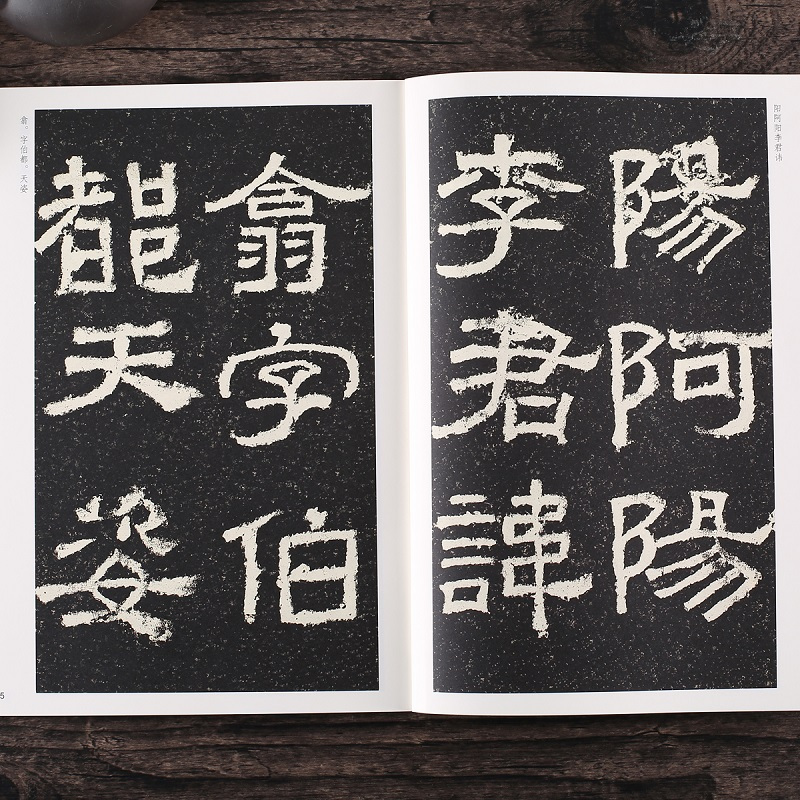 阳阿阳李君讳
陽阿陽
李君諱
翕字伯
都天姿
翕。字伯都。天姿
5